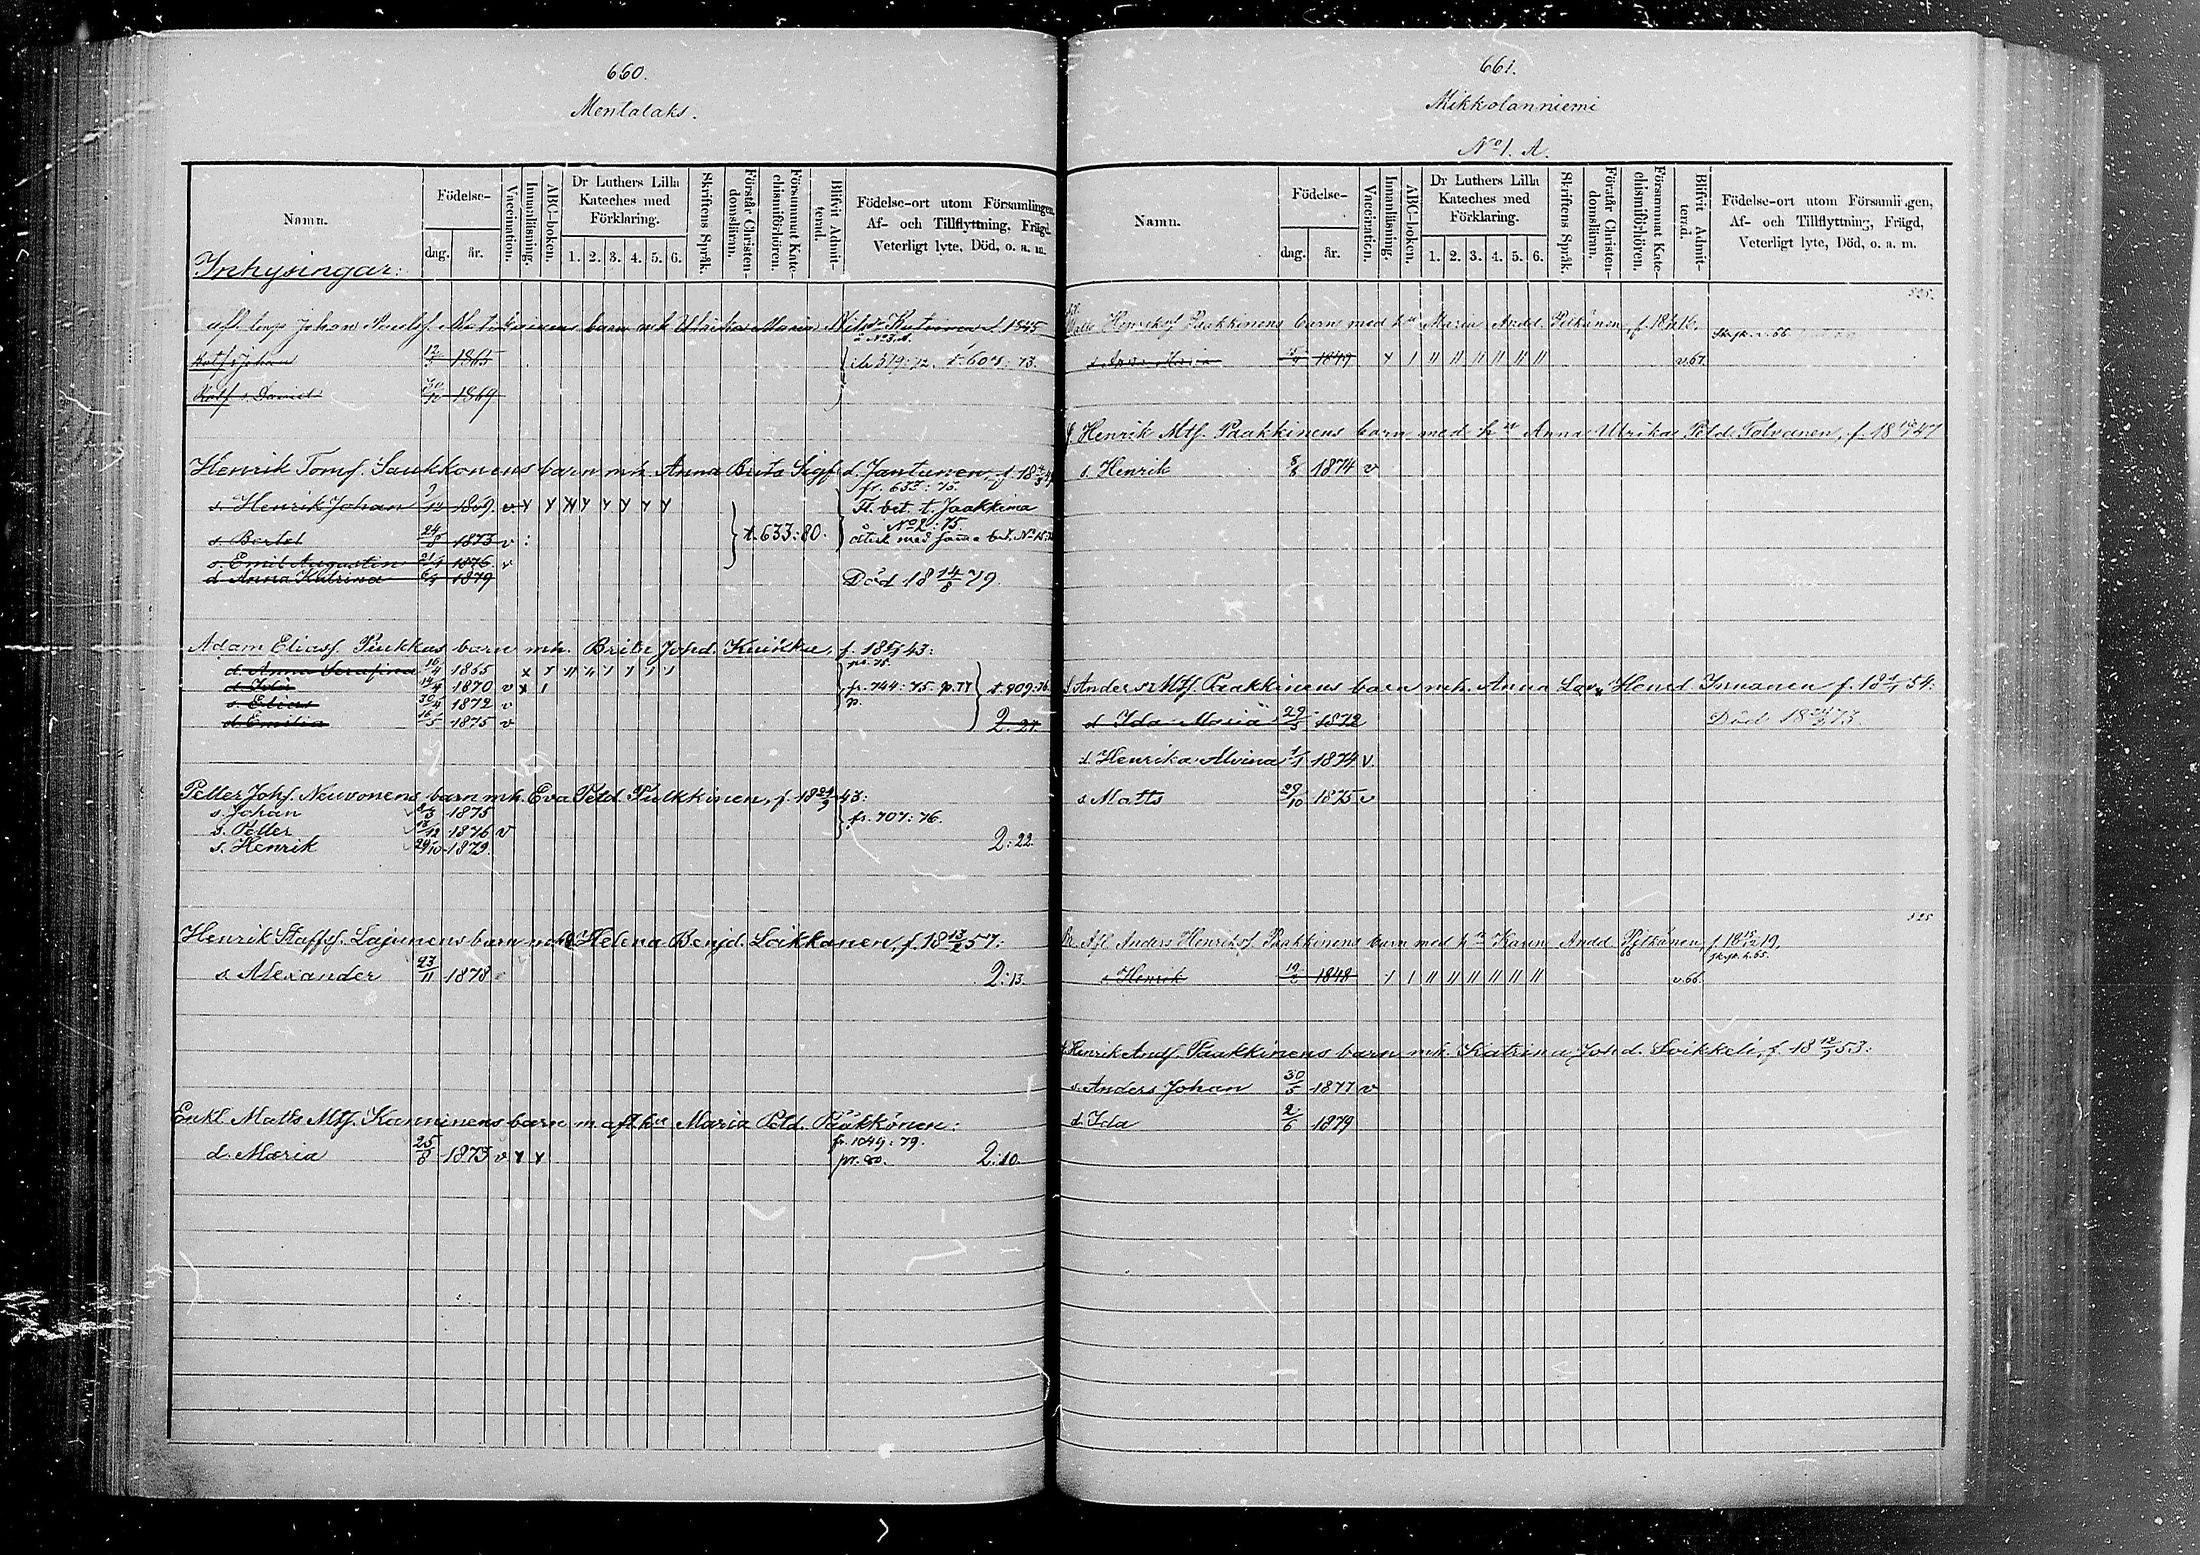 660.
Mentalaks.
Namn.
Födelse-
dag.
år.
Vaccination.
Innanläsning.
ABC-boken.
Dr Luthers Lilla Kateches med Förklaring.
1. 2. 3. 4. 5. 6.
Skriftens Språk.
Förstår Christendomsläran.
Försummat Katechismiförhören.
Blifvit Admittend.
Födelse-ort utom Församlingen,
Af- och Tillflyttning, Frägd,
Veterligt lyte, Död, o. a. m.
Inhysingar:
Johan
barn mh Ulrika Maria 1845
s. Johan 12/1 1865
s. David 1869
Henrik Tomf. Saukkonens barn mh. Anna Brita Sigf d. Jantunen, f. 18
fr. 633: 75.
s. Henrik Johan 1869. v
Fl. bet. t. Jaakkima
No 2: 75.
s. Bertel 24/8 1873 v
t. 633:80.
s. Emil Augustin 1876. v
d Anna Katrina 1879
Död 18 14/8 79.
Adam Eliasf. Piukkas barn mh. Brita Johd. f. 18 43:
d. Anna Serafina 16/4 1865
d. Ida 14/4 1870 v x 1
fr. 744: 75. p. 77
t. 909:76.
s. Elias 30/4 1872 v
d Emilia 16/5 1875 v
2. 21.
Petter Johf. Neuvonens barn mh. Eva Petd. Pulkkinen, f. 18 24/9 43:
s. Johan 8/3 1875
fr. 707: 76.
s. Petter 12 1876 v
s. Henrik 29/10 1879.
2: 22.
Henrik Staffsf. Lajunens barn mh Helena Benjd. Loikkanen, f. 18 13/2 57:
s. Alexander 23/11 1878
2: 13.
Enkl Matts Mtf. Kanninens barn m aflhu Maria Petd. Pääkkönen:
fr. 1049: 79.
d. Maria 25/8 1873 v x x
pr. 80.
2: 10.
661.
Mikkolanniemi
No 1. A.
Namn.
Födelse-
dag.
år.
Vaccination.
Innanläsning.
ABC-boken.
Dr Luthers Lilla Kateches med Förklaring.
1. 2. 3. 4. 5. 6.
Skriftens Språk.
Förstår Christendomsläran.
Försummat Katechismiförhören.
Blifvit Admittend.
Födelse-ort utom Församlingen,
Af- och Tillflyttning, Frägd,
Veterligt lyte, Död, o. a. m.
525.
Matts Henriksf Paakkinens barn med hu Maria Andd Pelkonen, f. 18 16.
Maria 1849
v. 67.
Henrik Mtf. Paakkinens barn med hu Anna Ulrika Petd. Tolvanen, f. 18 47
s. Henrik 8/8 1874 v
Anders Mtf. Paakkinens barn mh. Anna Lov. Henrd Innanen f. 18 54:
d Ida Maria 29/5 1872
Död 18 73.
d. Henrika Alvina 1/1 1874 v.
s. Matts 29/10 1875 v
525
Afl. Anders Henriksf. Paakkinens barn med hu Karin Andd Pelkonen, f. 18 19.
s Henrik 1848
v. 66.
Henrik Andf. Paakkinens barn mh. Katrina Johd. Loikkeli, f. 18 53:
s. Anders Johan 30/5 1877 v
d. Ida 2/6 1879